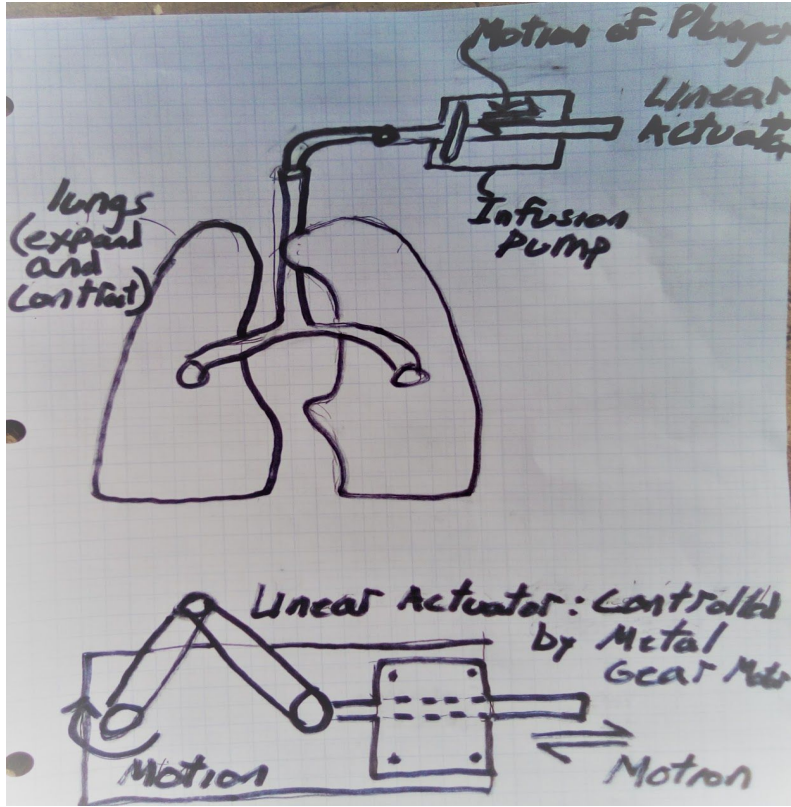 Motion of Plunger
Linear
Actuator
Infusion
Pump
lungs
(expand
and
contract)
Linear Actuator: Controlled
by Metal
Gear Motor
Motion
Motion